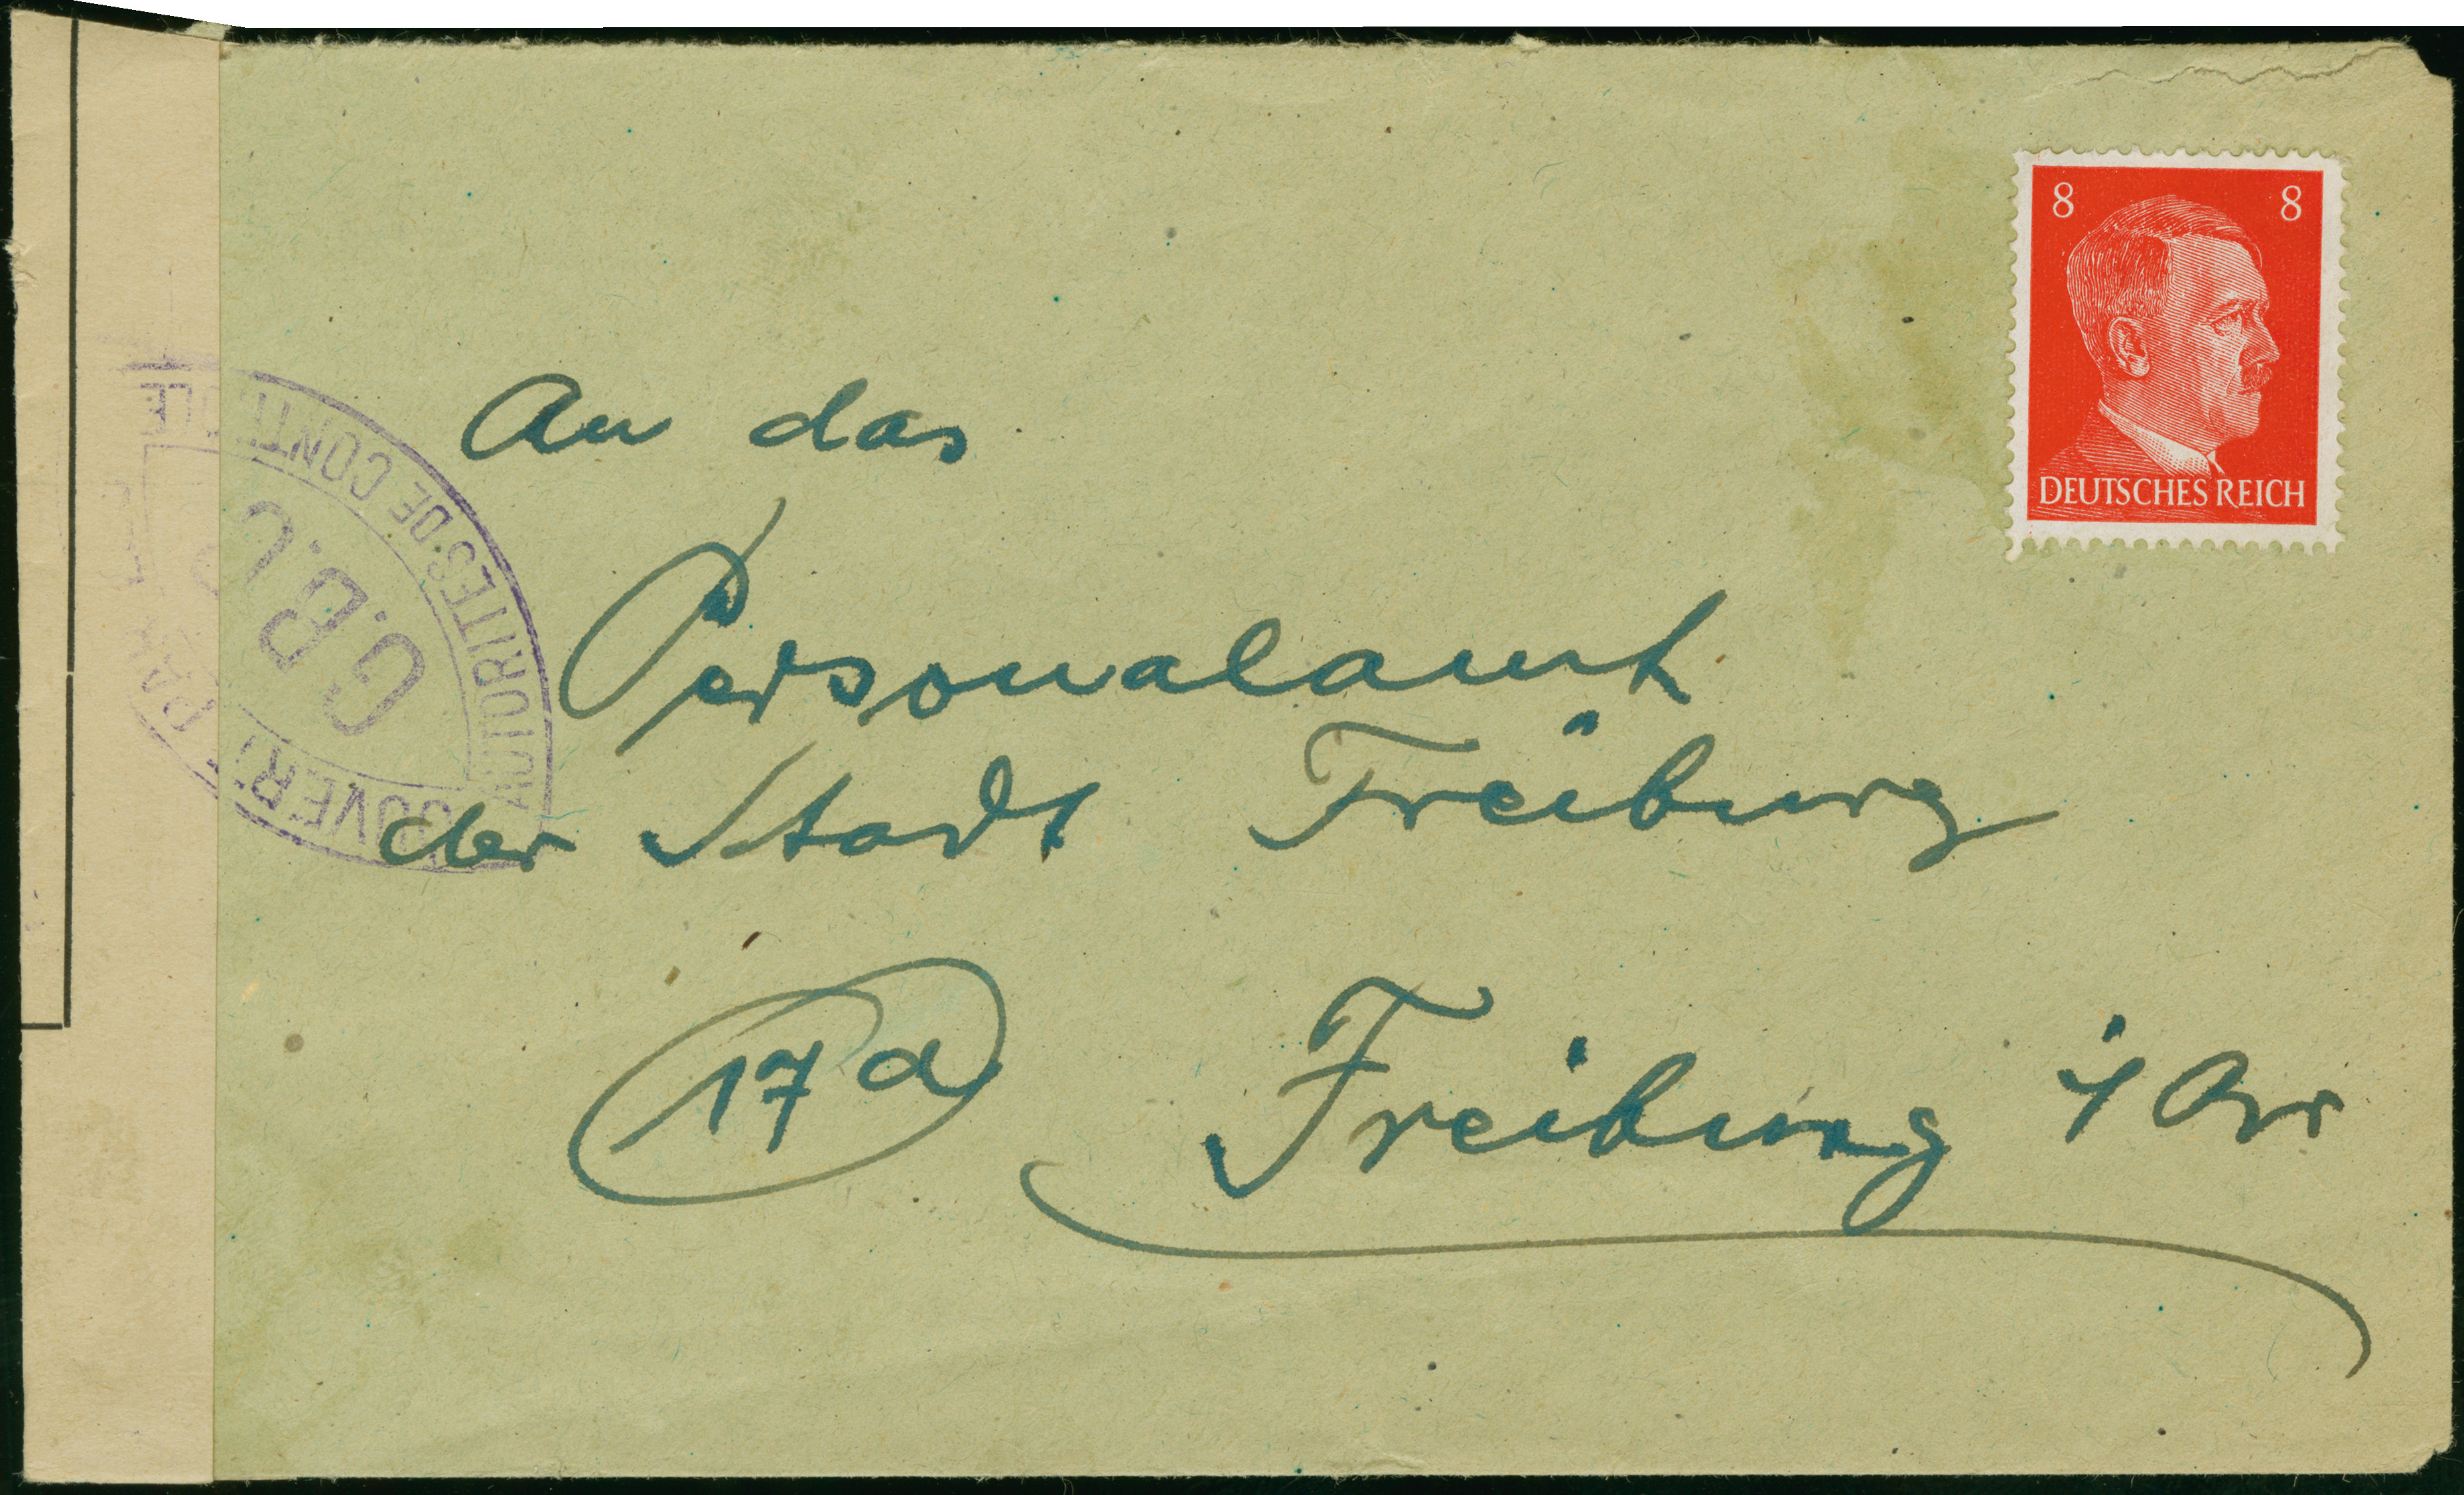 8 8
DEUTSCHES REICH
OUVERT PAR
AUTORITES DE CONTROLE
G.B.C.
An das
Personalamt
der Stadt Freiburg
17a Freiburg i/Br